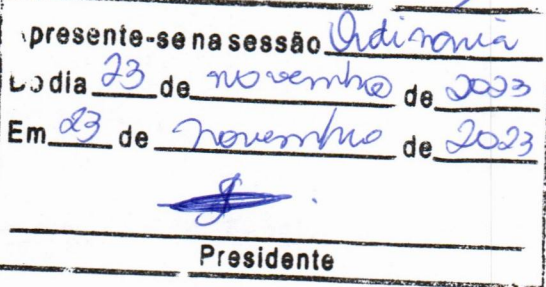 Apresente-se na sessão Ordinária
Do dia 23 de novembro de 2023
Em 23 de novembro de 2023
Presidente